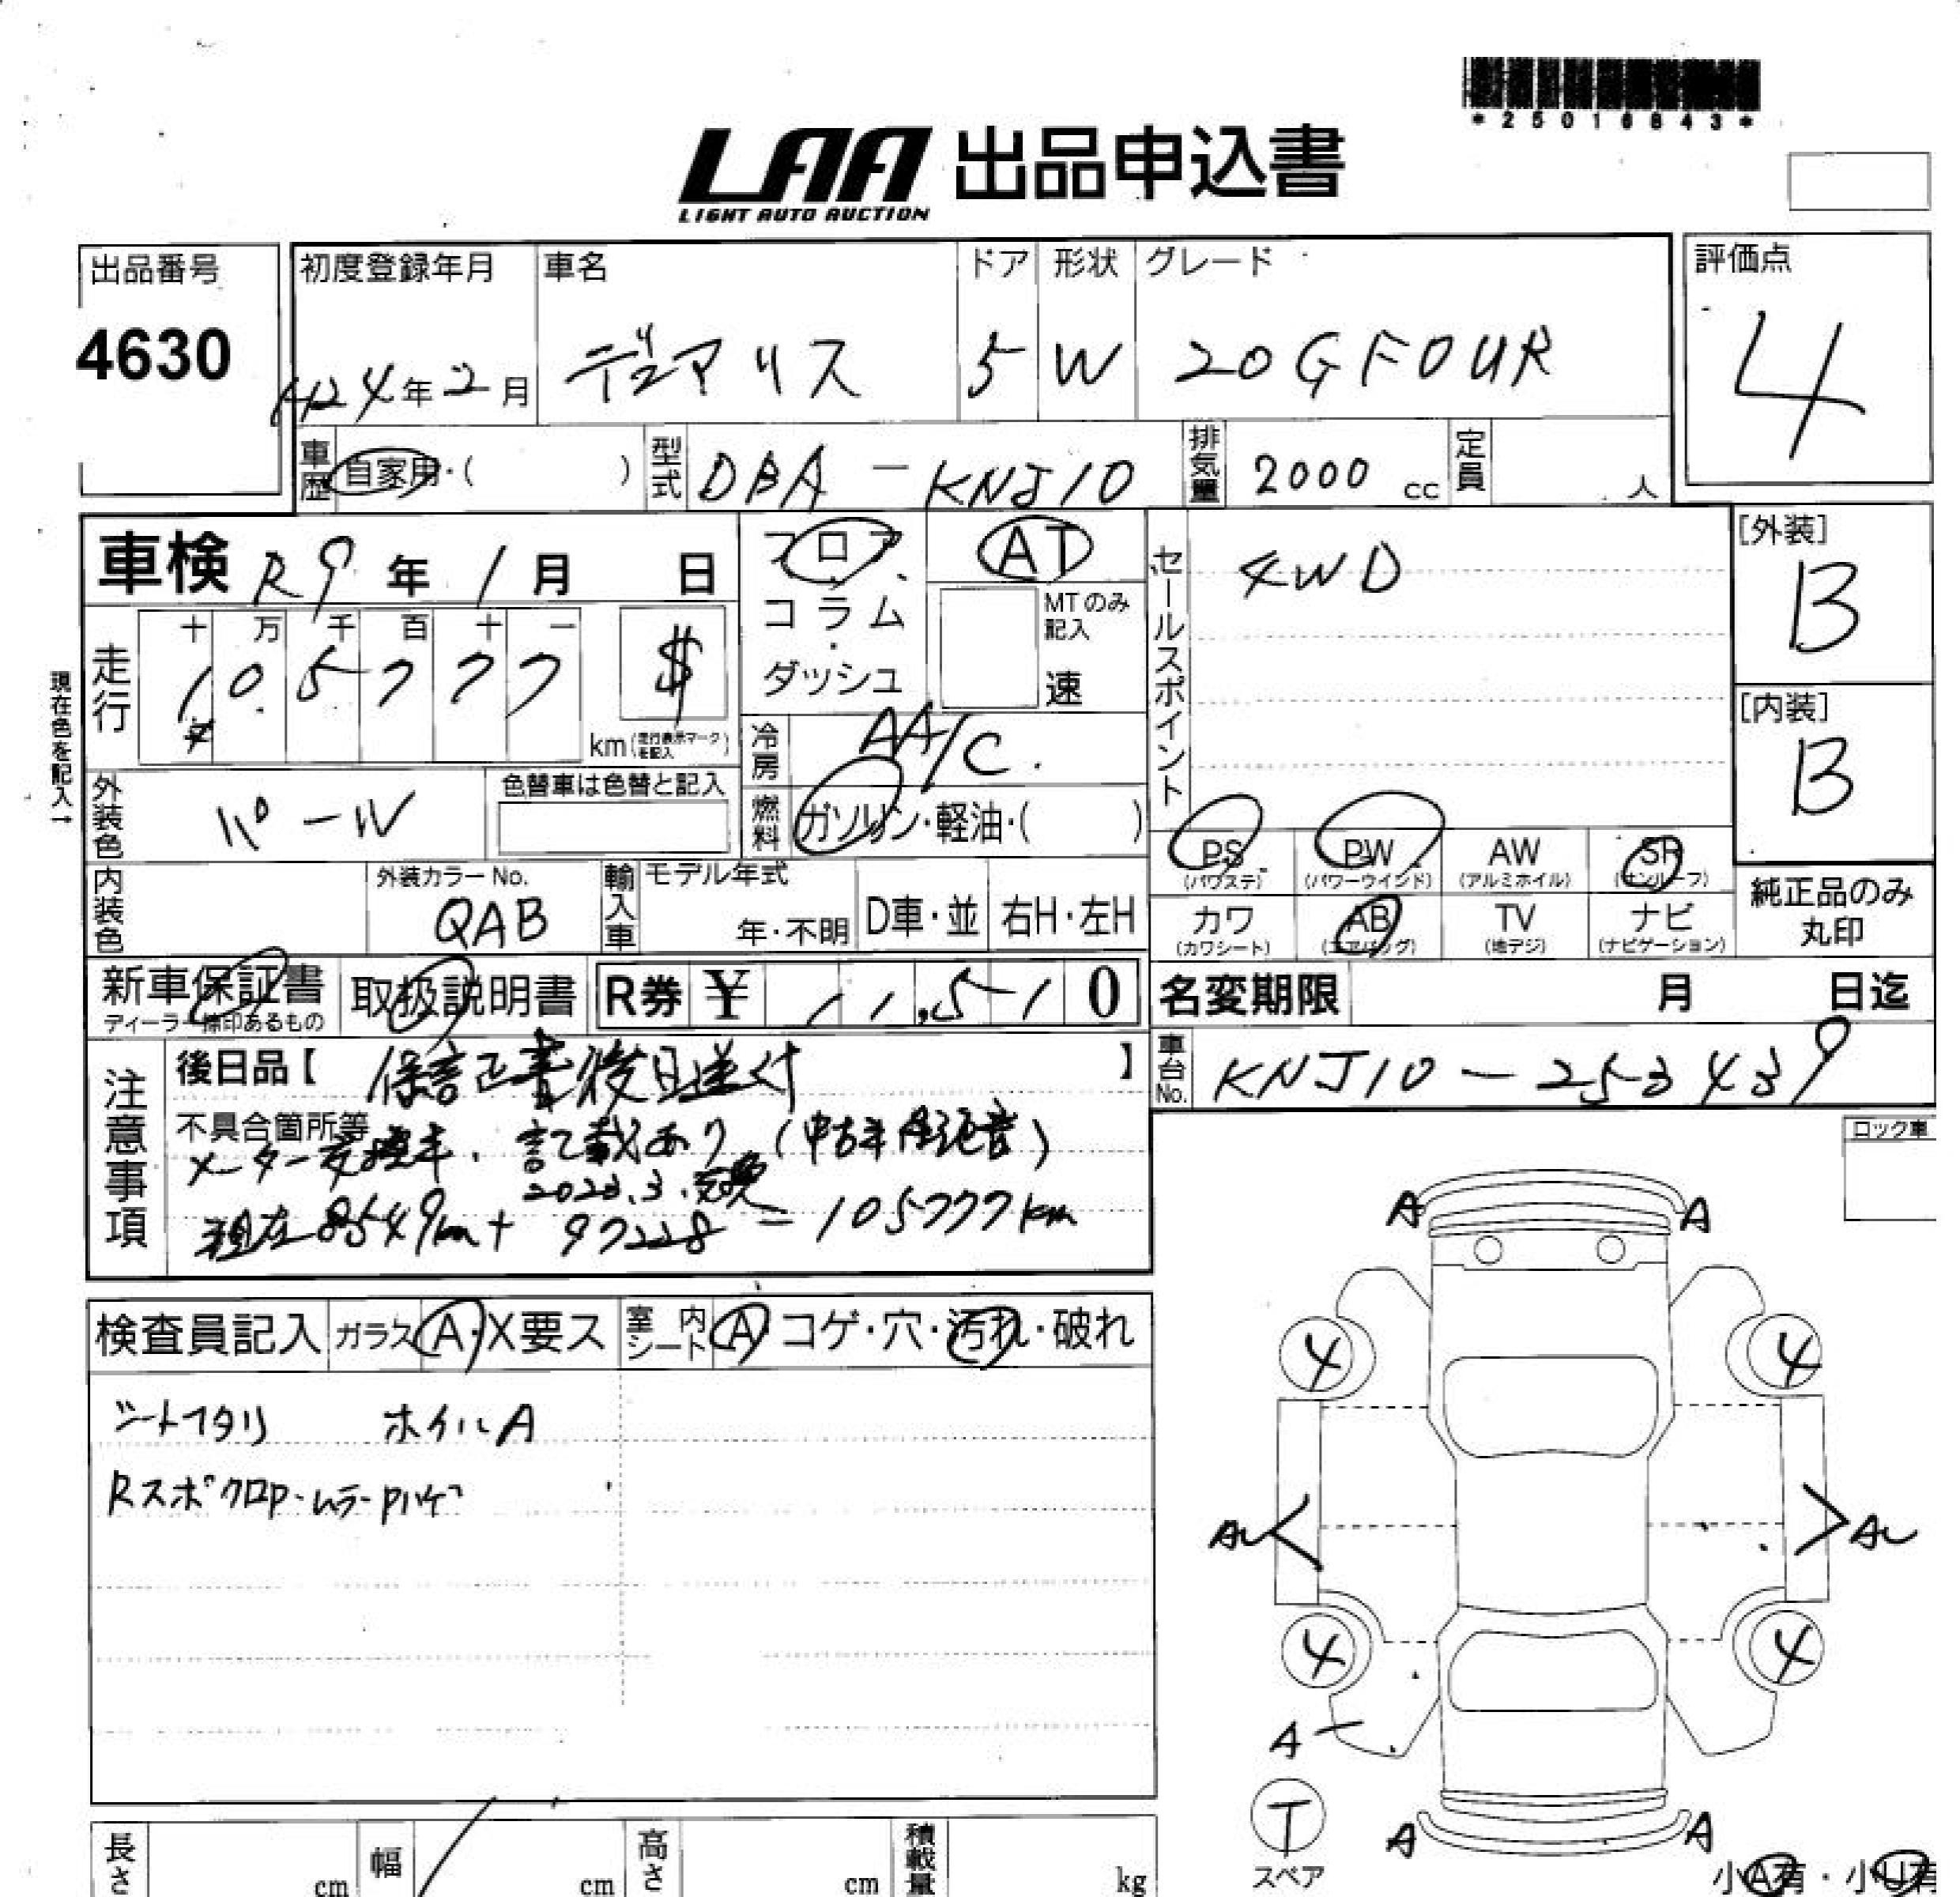 *25016843*
LAA 出品申込書
LIGHT AUTO AUCTION
出品番号
4630
初度登録年月
H24年2月
車名
デュアリス
ドア
5
形状
W
グレード
20G FOUR
評価点
4
車歴 自家用・( )
型式 DBA-KNJ10
排気量 2000 cc
定員 人
車検 R9年1月 日
フロア
コラム
・
ダッシュ
AT
MTのみ
記入
速
セールスポイント
4WD
[外装]
B
[内装]
B
現在色を記入→
走行
十 万 千 百 十 一
1 0 5 7 7 7
$
km(走行表示マークを記入)
冷房 AA/C.
外装色 パール
色替車は色替と記入
燃料 ガソリン・軽油・( )
PS AW PW SR
(パワステ) (パワーウインド) (アルミホイル) (サンルーフ)
カワ AB TV ナビ
(カワシート) (エアバッグ) (地デジ) (ナビゲーション)
純正品のみ
丸印
内装色
外装カラーNo.
QAB
輸入車
モデル年式
年・不明
D車・並
右H・左H
新車保証書
ディーラー捺印あるもの
取扱説明書
R券 ¥ 11,510
名変期限 月 日迄
車台No. KNJ10-253439
注意事項
後日品【 保証書後日送付 】
不具合箇所等
メーター交換車、記載あり
2023.3.交換
現在8549km+97228=105777km
ロック車
検査員記入 ガラス A・X要ス 室内シート A・コゲ・穴・汚れ・破れ
シートスタリ ホイルA
RスポクロP・ムラ・Pハゲ
A A
4 4
AU AU
4 4
A
T
スペア
A A
小A有・小U有
長さ cm 幅 cm 高さ cm 積載量 kg